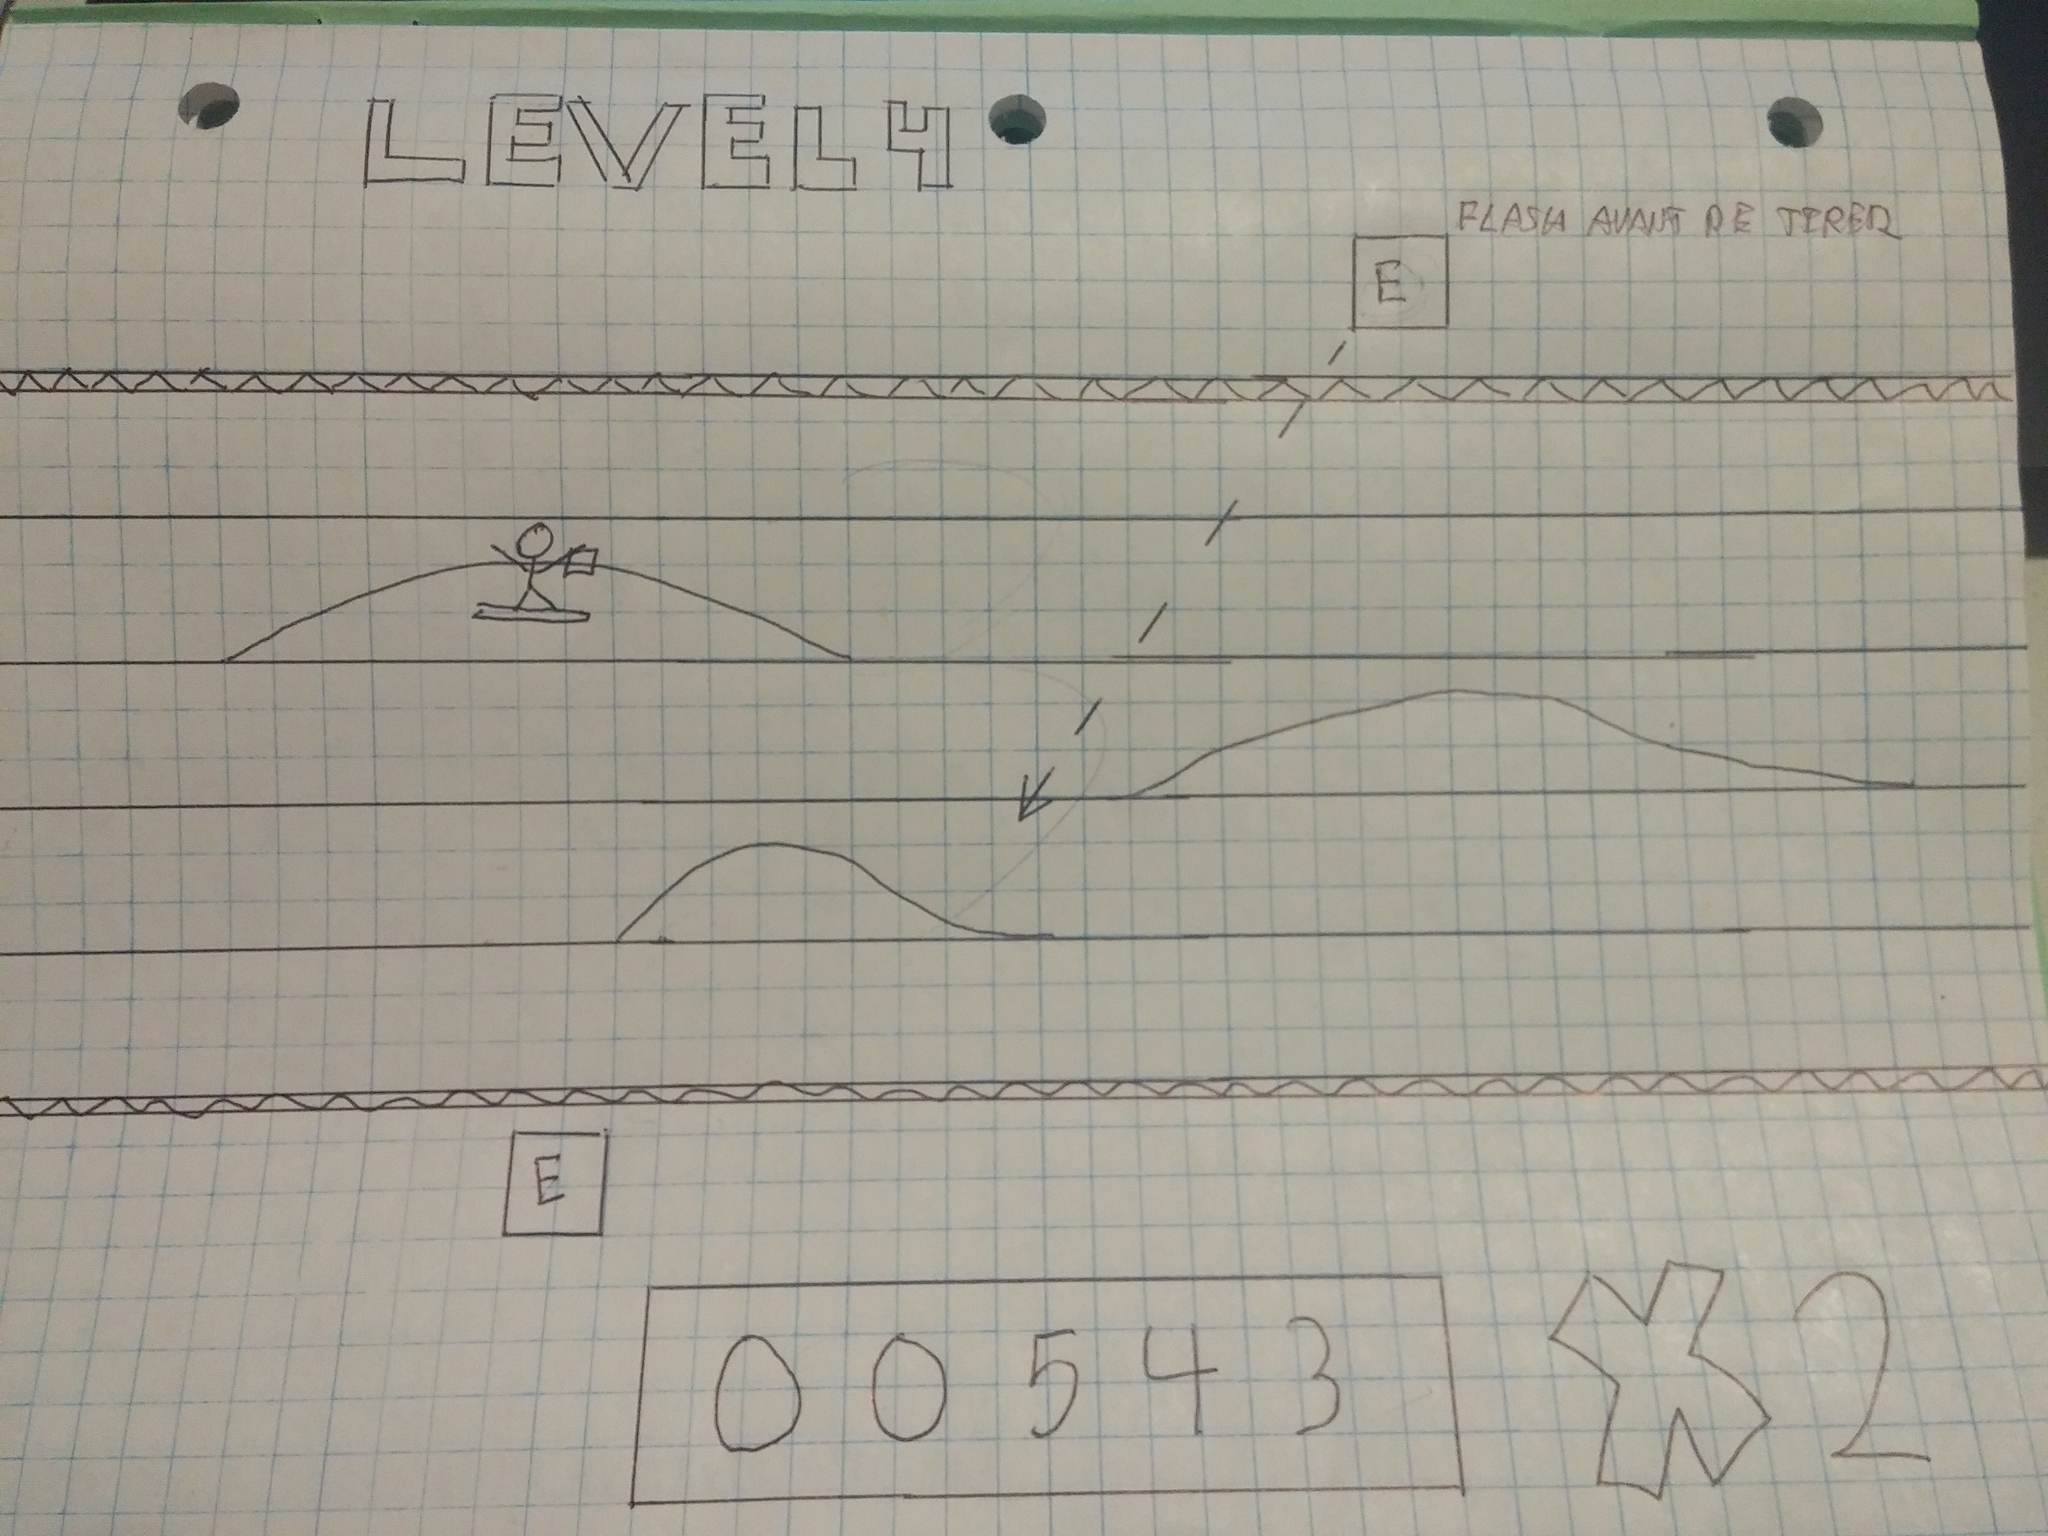 LEVEL 4
FLASH AVANT DE TIRER
E
E
00543 X2